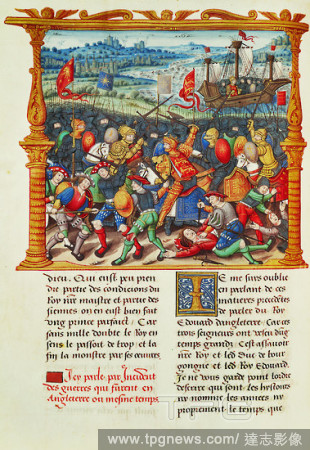 dieu. Qui eust peu pren
dre partie des condicions du
Roy nre maistre et partie des
siennes on en eust bien fait
ung prince parfaict / Car
sans nulle doubte le Roy en
sens le passoit de trop : et la
fin la monstre par ses œuvres
Icy parle par Incident
des guerres qui furent en
Angleterre ou mesme temps
IE me suis oublie
en parlant de ces
matieres precedentes
de parler du Roy
Edouard dangleterre / Car ces
trois seigneurs ont vescu dung
temps grandz / Cest assavoir
nre Roy et led Duc de bour
gongne et led Roy Edouard
Je ne vous garde point lordre
descrire que font les hystoires
ne nomme les annees ne
proprement le temps que
TPG
www.tpgnews.com/ 達志影像